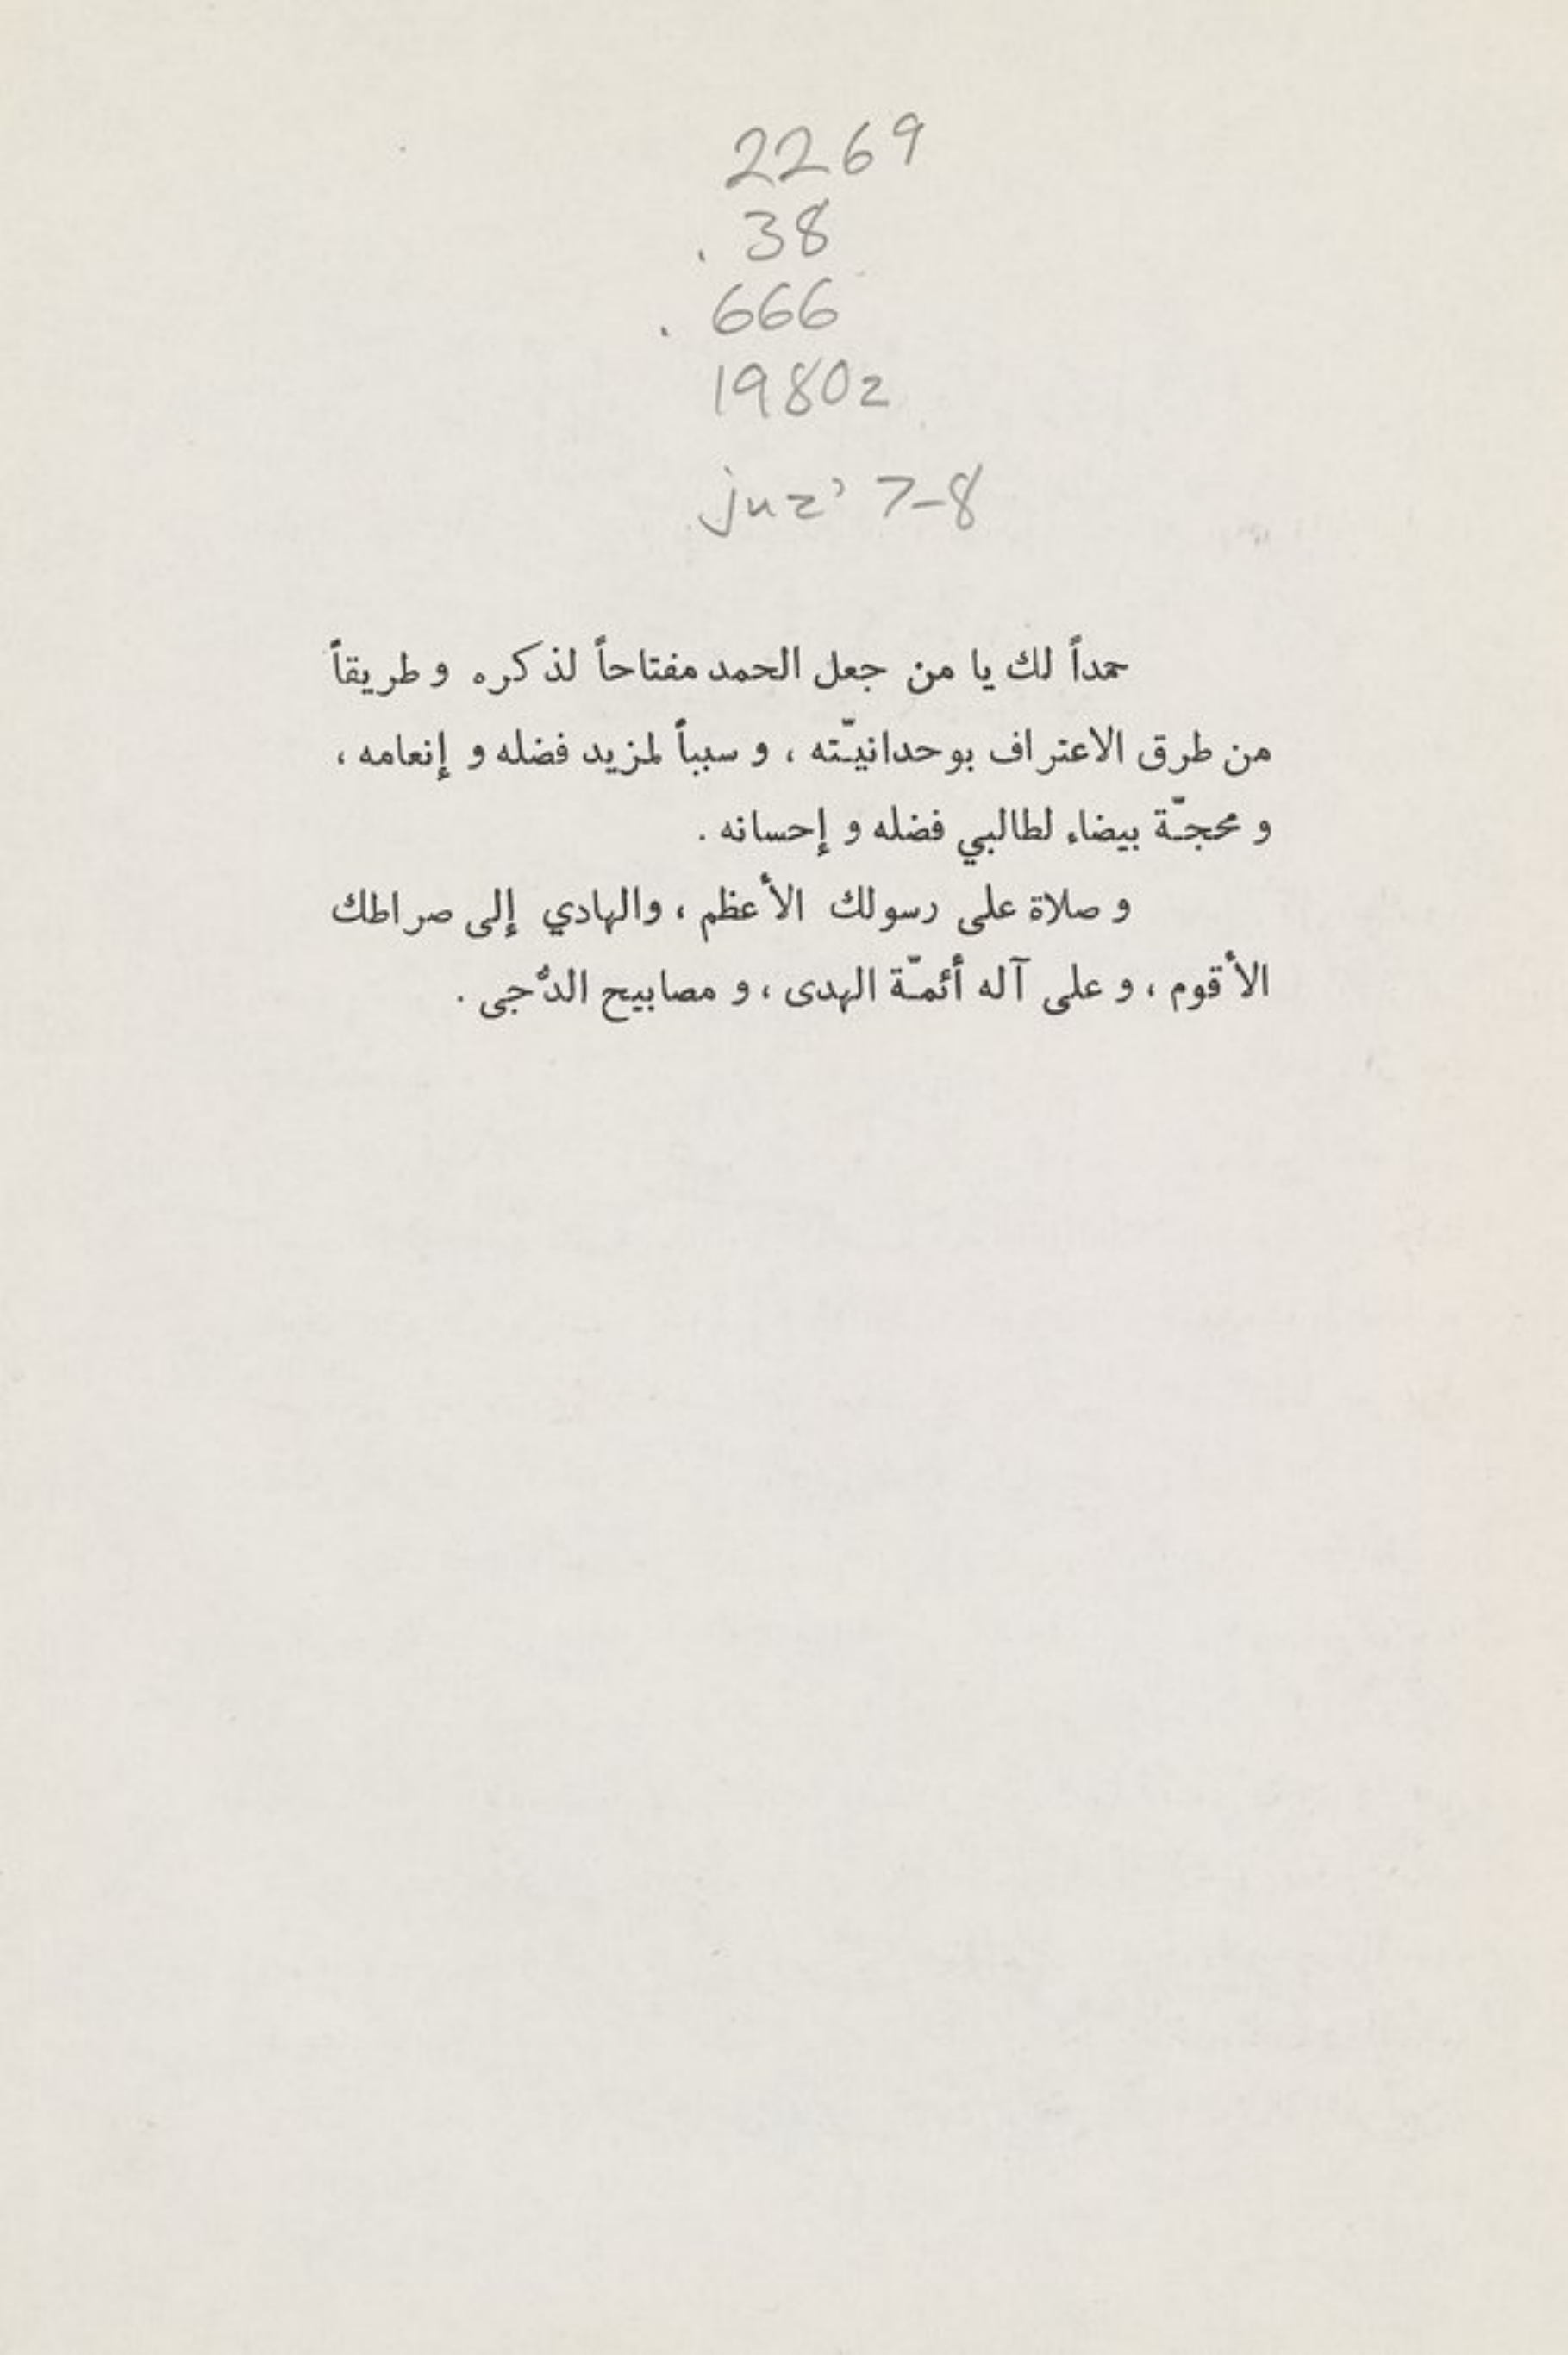 2269
.38
.666
1980z
juz' 7-8
حمداً لك يا من جعل الحمد مفتاحاً لذكره و طريقاً
من طرق الاعتراف بوحدانيّـته ، و سبباً لمزيد فضله و إنعامه ،
و محجـّة بيضاء لطالبي فضله و إحسانه .
و صلاة على رسولك الأعظم ، والهادي إلى صراطك
الأقوم ، و على آله أئمـّة الهدى ، و مصابيح الدُّجى .